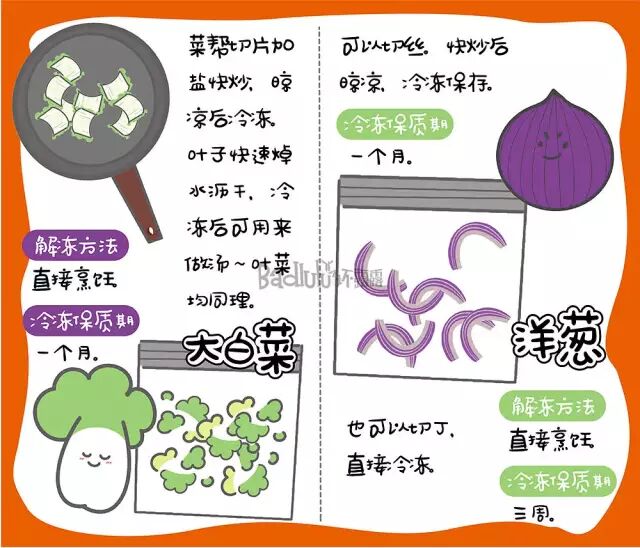 菜帮切片加
盐快炒，晾
凉后冷冻。
叶子快速焯
水沥干，冷
冻后可用来
做汤～叶菜
均同理。
解冻方法
直接烹饪
冷冻保质期
一个月。
大白菜
可以切丝，快炒后
晾凉，冷冻保存。
冷冻保质期
一个月。
洋葱
也可以切丁，
直接冷冻
解冻方法
直接烹饪
冷冻保质期
三周。